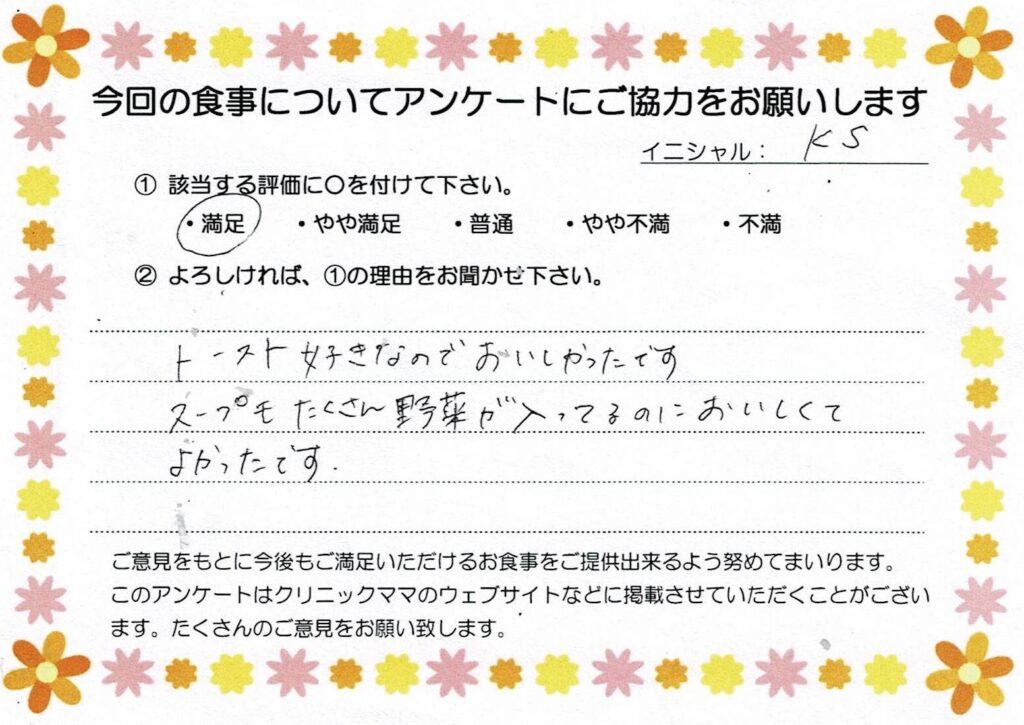 今回の食事についてアンケートにご協力をお願いします
イニシャル： KS
① 該当する評価に〇を付けて下さい。
・満足 ・やや満足 ・普通 ・やや不満 ・不満
② よろしければ、①の理由をお聞かせ下さい。
トースト好きなのでおいしかったです
スープもたくさん野菜が入ってるのにおいしくて
よかったです.
ご意見をもとに今後もご満足いただけるお食事をご提供出来るよう努めてまいります。
このアンケートはクリニックママのウェブサイトなどに掲載させていただくことがござい
ます。たくさんのご意見をお願い致します。